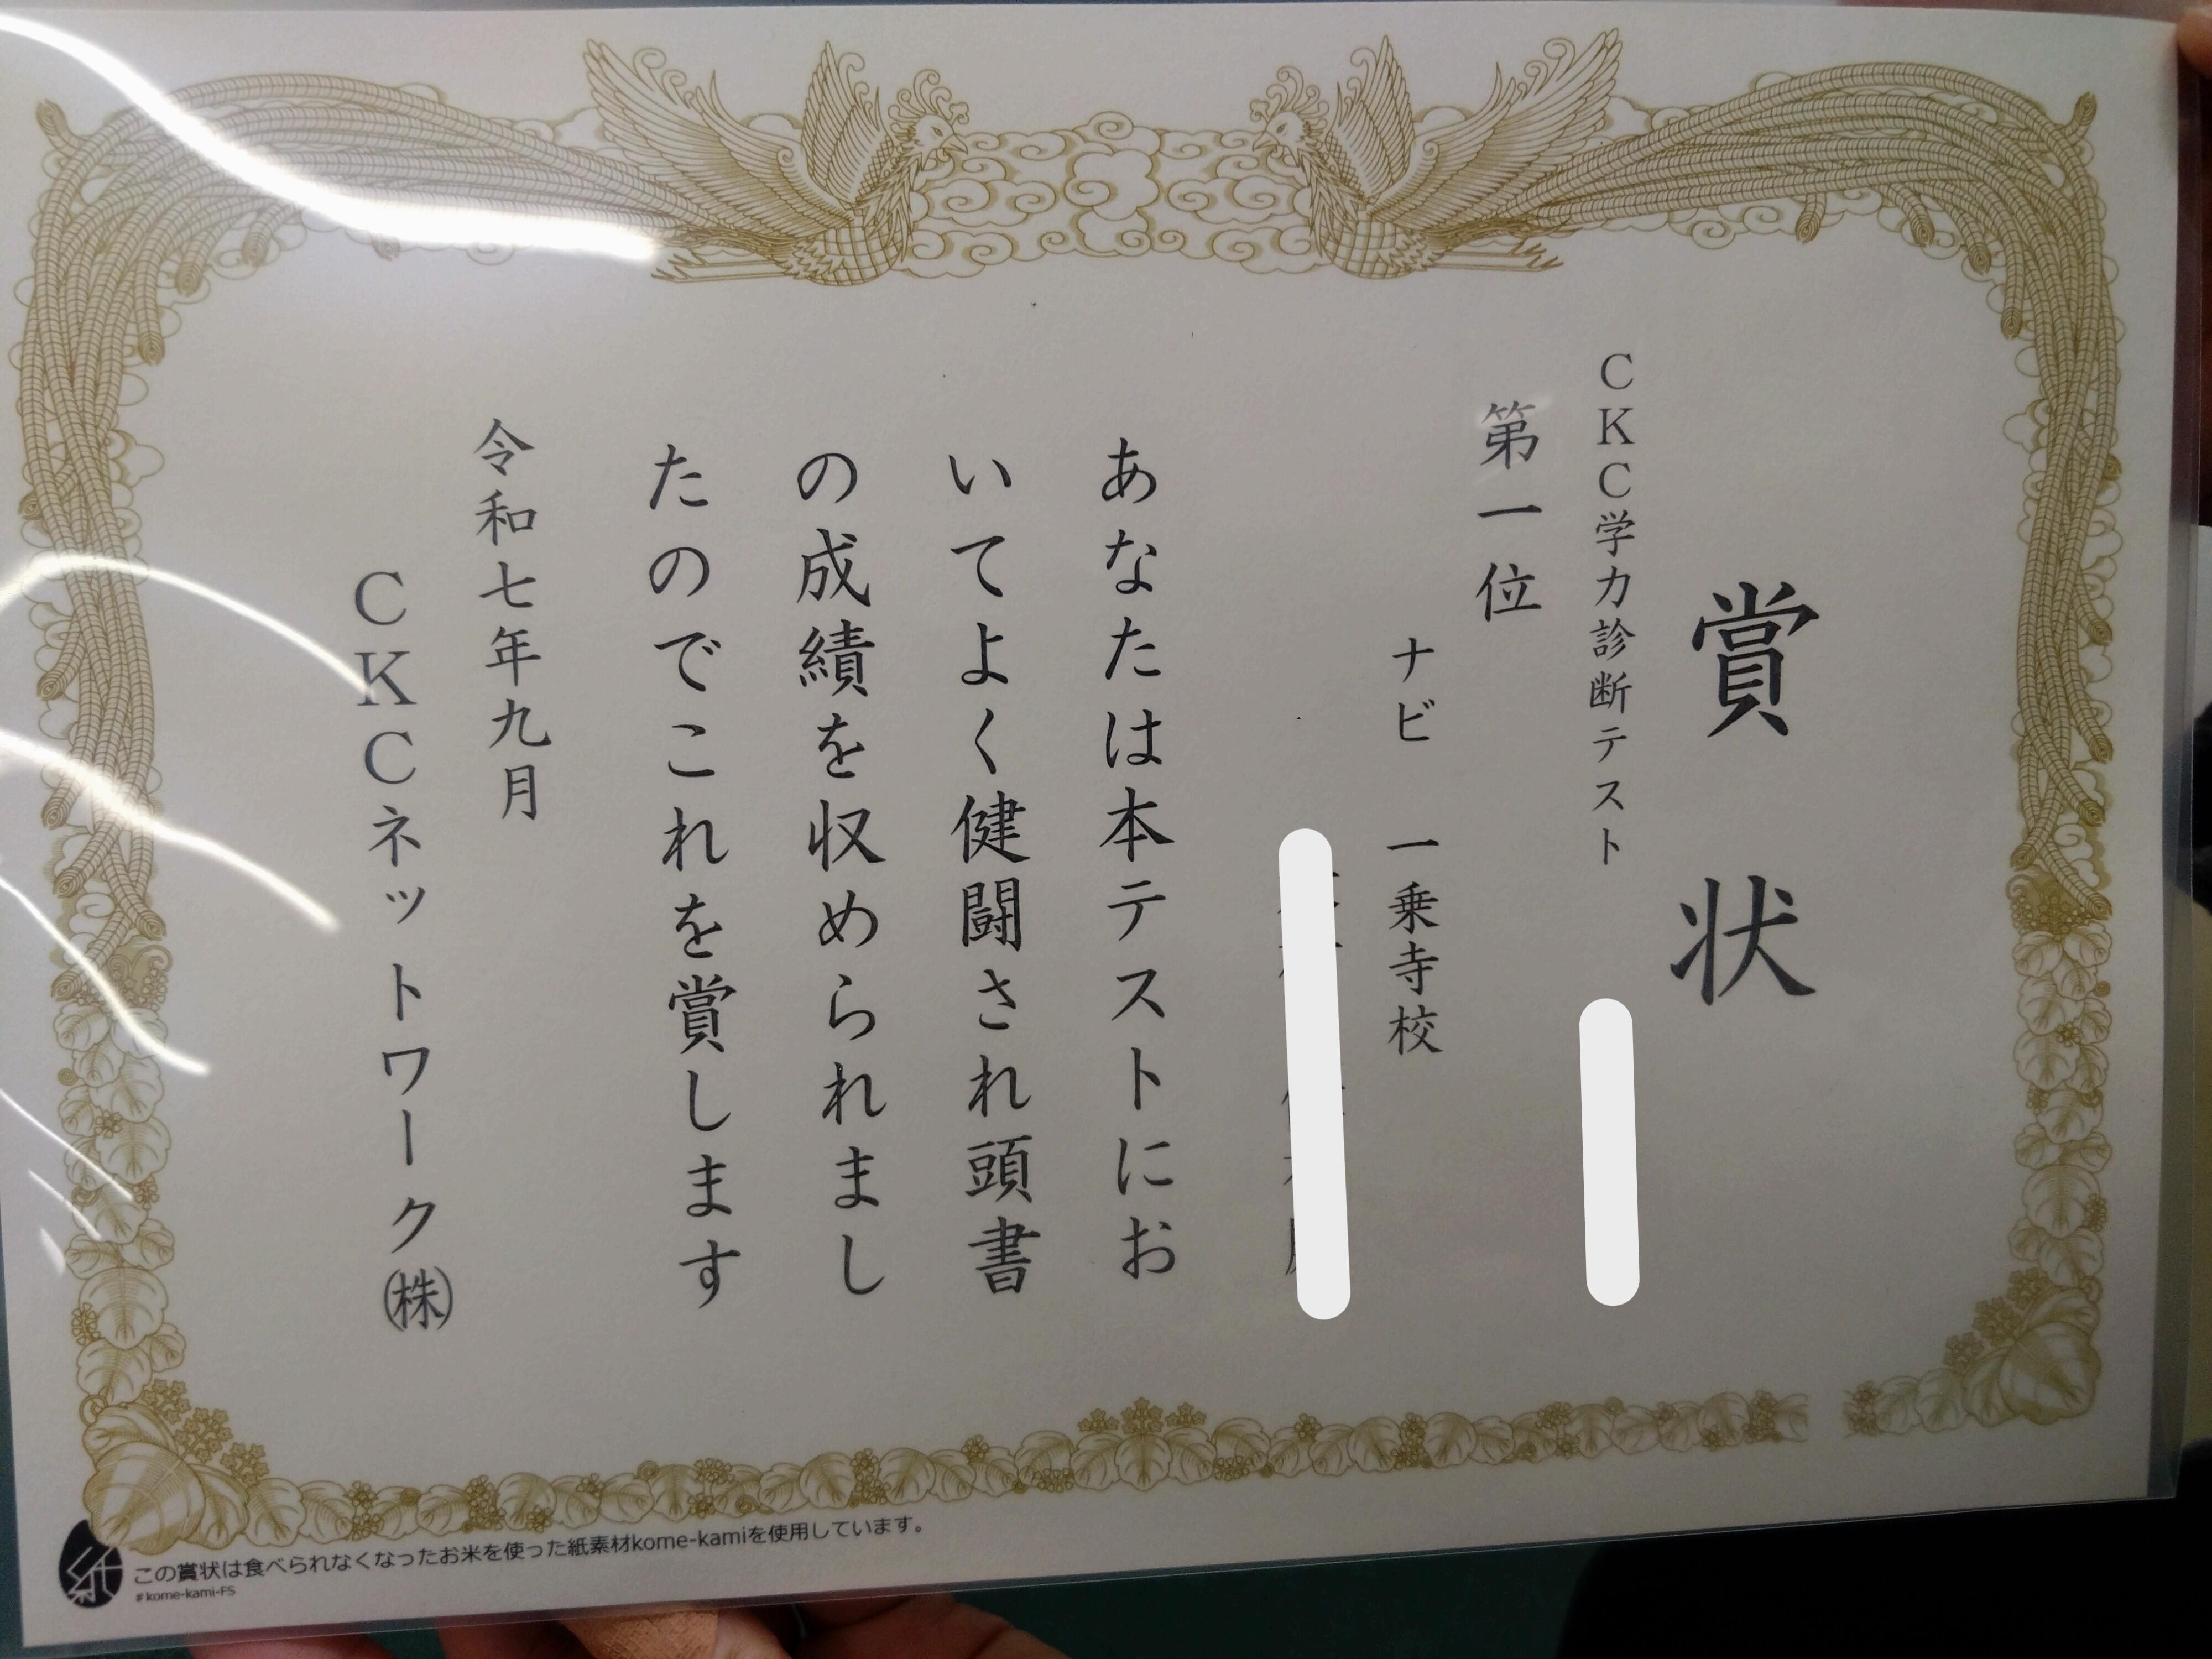 賞状
CKC学力診断テスト
第一位
ナビ 一乗寺校
あなたは本テストにお
いてよく健闘され頭書
の成績を収められまし
たのでこれを賞します
令和七年九月
CKCネットワーク㈱
紙
この賞状は食べられなくなったお米を使った紙素材kome-kamiを使用しています。
#kome-kami-FS